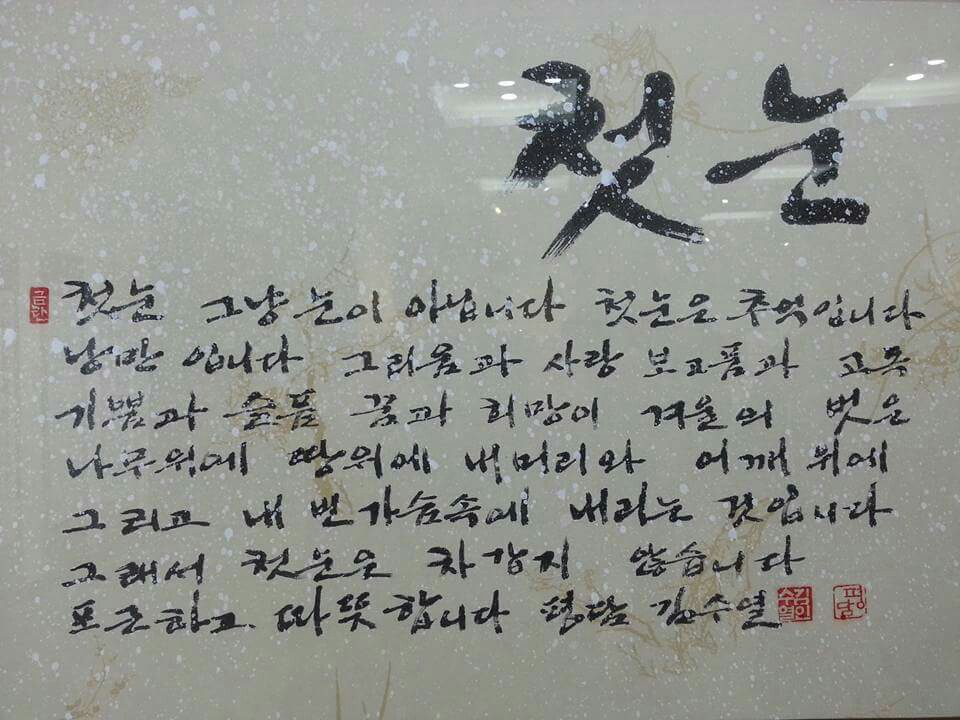 첫눈
첫눈 그냥 눈이 아닙니다 첫눈은 추억입니다
낭만 입니다 그리움과 사랑 보고픔과 고독
기쁨과 슬픔 꿈과 희망이 겨울의 벗은
나무위에 땅위에 내머리와 어깨 위에
그리고 내 빈가슴속에 내리는 것입니다
그래서 첫눈은 차갑지 않습니다
포근하고 따뜻합니다 평담 김수열
평담